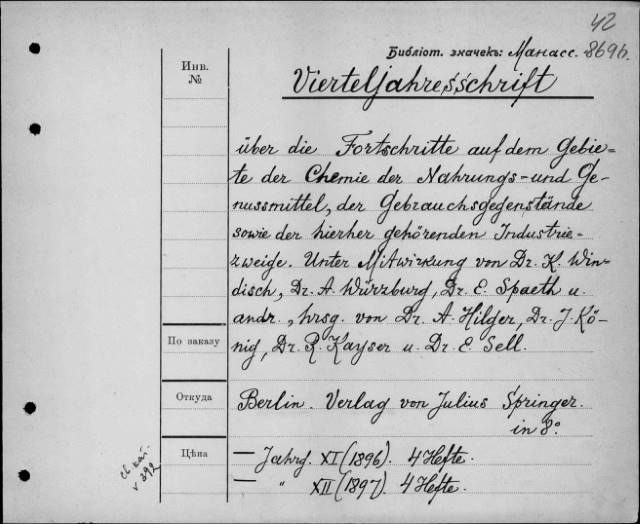 42
Библіот. значекъ: Манасс. 869б.
Инв.
№
Vierteljahresschrift
über die Fortschritte auf dem Gebie-
te der Chemie der Nahrungs- und Ge-
nussmittel, der Gebrauchsgegenstände
sowie der hierher gehörenden Industrie-
zweige. Unter Mitwirkung von Dr. K. Win-
disch, Dr. A. Würzburg, Dr. E. Spaeth u.
andr., hrsg. von Dr. A. Hilger, Dr. J. Kö-
nig, Dr. R. Kayser u. Dr. E. Sell.
По заказу
Откуда
Berlin. Verlag von Julius Springer.
in 8º.
Цѣна
— Jahrg. XI (1896). 4 Hefte.
— " XII (1897). 4 Hefte.
v 392